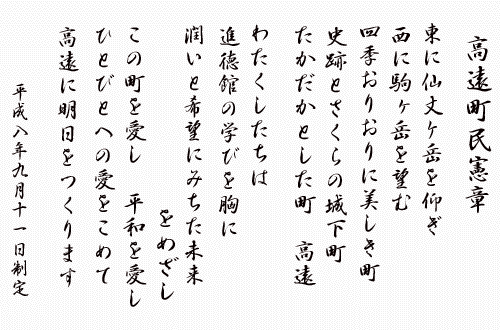 高遠町民憲章
東に仙丈ケ岳を仰ぎ
西に駒ヶ岳を望む
四季おりおりに美しき町
史跡とさくらの城下町
たかだかとした町　高遠
わたくしたちは
進徳館の学びを胸に
潤いと希望にみちた未来
をめざし
この町を愛し　平和を愛し
ひとびとへの愛をこめて
高遠に明日をつくります
平成八年九月十一日制定